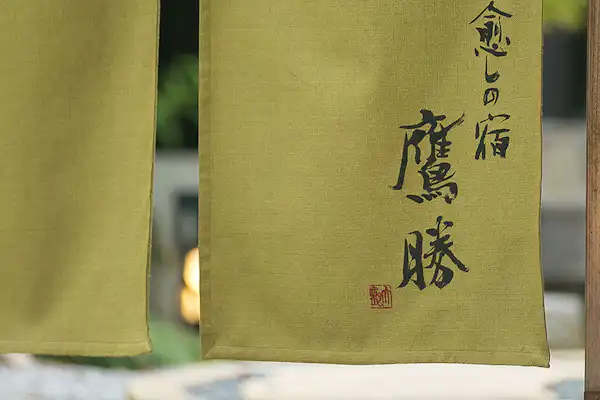 癒しの宿
鷹勝